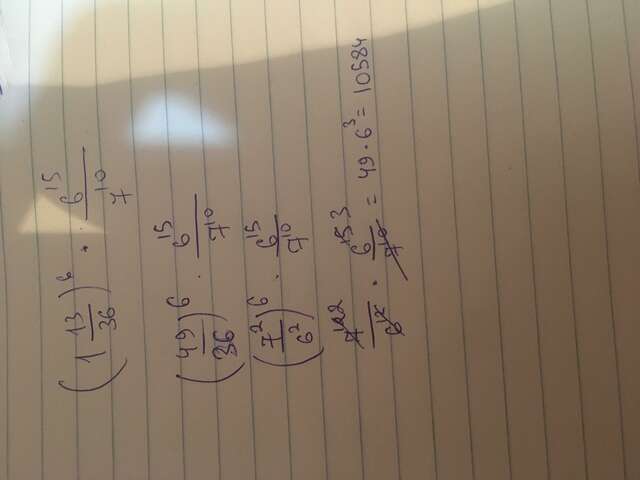 (1 13/36)^6 · 6^15/7^10
(49/36)^6 · 6^15/7^10
(7^2/6^2)^6 · 6^15/7^10
7^12 2/6^12 · 6^15 3/7^10 = 49 · 6^3 = 10584